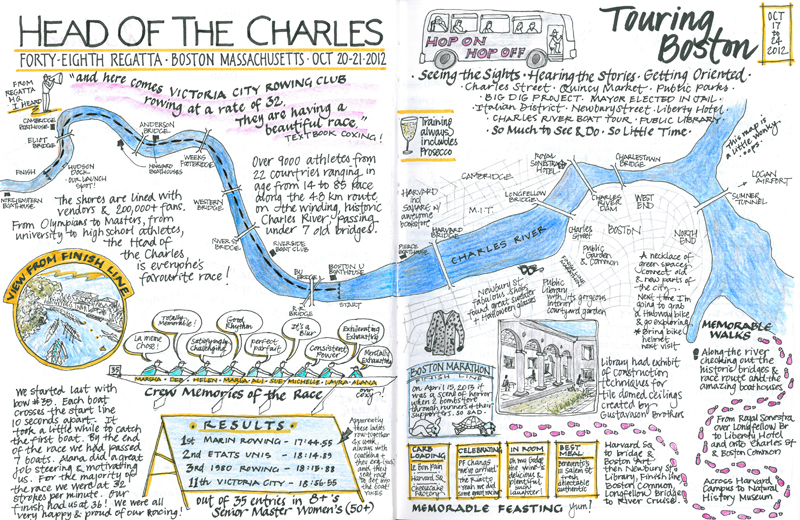 HEAD OF THE CHARLES
FORTY-EIGHTH REGATTA · BOSTON MASSACHUSETTS · OCT 20-21·2012
FROM
REGATTA
H.Q.
I HEARD
"and here comes VICTORIA CITY ROWING CLUB
rowing at a rate of 32.
They are having a
beautiful race."
TEXTBOOK COXING!
CAMBRIDGE
BOATHOUSE
ELIOT
BRIDGE
FINISH
HUDSON
DOCK
OUR LAUNCH
SPOT!
NORTHEASTERN
BOATHOUSE
ANDERSON
BRIDGE
HARVARD
BOATHOUSE
WEEKS
FOOTBRIDGE
WESTERN
BRIDGE
RIVER ST
BRIDGE
RIVERSIDE
BOAT CLUB
BU
BRIDGE
R.R.
BRIDGE
BOSTON U
BOATHOUSE
START
The shores are lined with
vendors & 200,000+ fans.
From Olympians to Masters, from
university to high school athletes,
the Head of
the Charles
is everyone's
favourite race!
Over 9000 athletes from
22 countries ranging in
age from 14 to 85 race
along the 4.8 km route
on the winding, historic
Charles River passing
under 7 old bridges.
VIEW FROM FINISH LINE
La meme
Chose!
Totally
Memorable!
Satisfyingly
Challenging
Good
Rhythm
perfect
partfait
It's a
Blur
Consistent
Power
Exhilarating
Exhausting
Mentally
Exhausting
35
MARSHA · DEB · HELEN · MARIA · ALI · SUE · MICHELLE · LAURA · ALANA
COXY!
Crew Memories of the Race
We started last with
bow #35. Each boat
crosses the start line
10 seconds apart. It
took a little while to catch
the first boat. By the end
of the race we had passed
7 boats. Alana did a great
job steering & motivating
us. For the majority of
the race we were at 32
strokes per minute. Our
finish had us at 36! We were all
very happy & proud of our rowing!
RESULTS
1st MARIN ROWING - 17:44.55
2nd ETATS UNIS - 18:14.89
3rd 1980 ROWING - 18:15.88
11th VICTORIA CITY - 18:56.55
out of 35 entries in 8+'s
Senior Master Women's (50+)
Apparently
these ladies
row together
always with
coaching &
to get into
the boat!
YIKES
HOP ON
HOP OFF
Touring
Boston
OCT
17
to
24
2012
· Seeing the Sights · Hearing the Stories · Getting Oriented ·
Charles Street · Quincy Market · Public Parks ·
BIG DIG PROJECT · MAYOR ELECTED IN JAIL ·
Italian District · Newbury Street · Liberty Hotel ·
· CHARLES RIVER BOAT TOUR · PUBLIC LIBRARY ·
· So Much to See & Do · So Little Time ·
Training
always
includes
Prosecco
This map is
a little wonky
oops.
CAMBRIDGE
ROYAL
SONESTA
HOTEL
CHARLESTOWN
BRIDGE
LOGAN
AIRPORT
HARVARD
SQUARE w/
awesome
bookstore
M.I.T.
LONGFELLOW
BRIDGE
CHARLES
RIVER
DAM
WEST
END
SUMNER
TUNNEL
HARVARD
BRIDGE
BOATHOUSE
CHARLES RIVER
Charles
Street
BOSTON
NORTH
END
Public
Garden
& Common
Newbury St
fabulous shops
found great sweater
& Halloween glasses
Public
Library
with its gorgeous
interior
courtyard garden
A necklace of
green spaces
connect old
& new parts
of the city.
Next time I'm
going to grab
a Hubway bike
& go exploring.
* Bring bike
helmet
next visit
BOSTON MARATHON
FINISH LINE
on April 15, 2013 it
was a scene of horror
when 2 bombs tore
through runners & their
supporters. So SAD.
Library had exhibit
of construction
techniques for
tile domed ceilings
created by
Gustavino Brothers
MEMORABLE
WALKS
Along the river
checking out the
historic bridges &
race route and the
amazing boathouses
From Royal Sonesta
over Longfellow Br
to Liberty Hotel
and onto Charles St
& Boston Common
Across Harvard
Campus to Natural
History Museum
Harvard Sq
to bridge &
Boston Port
then Newbury St
Library, Finish line
Boston Common,
Longfellow Bridge
to River Cruise.
CARB
LOADING
Le Bon Pain
Harvard Sq
Cheesecake
Factory
CELEBRATING
PF Changs
were arrived
the Rialto
Yeah we did
IN ROOM
the wine's
delicious &
plentiful
such
laughter!
BEST
MEAL
on Salem St
fresh
delectable
authentic
MEMORABLE FEASTING yum!